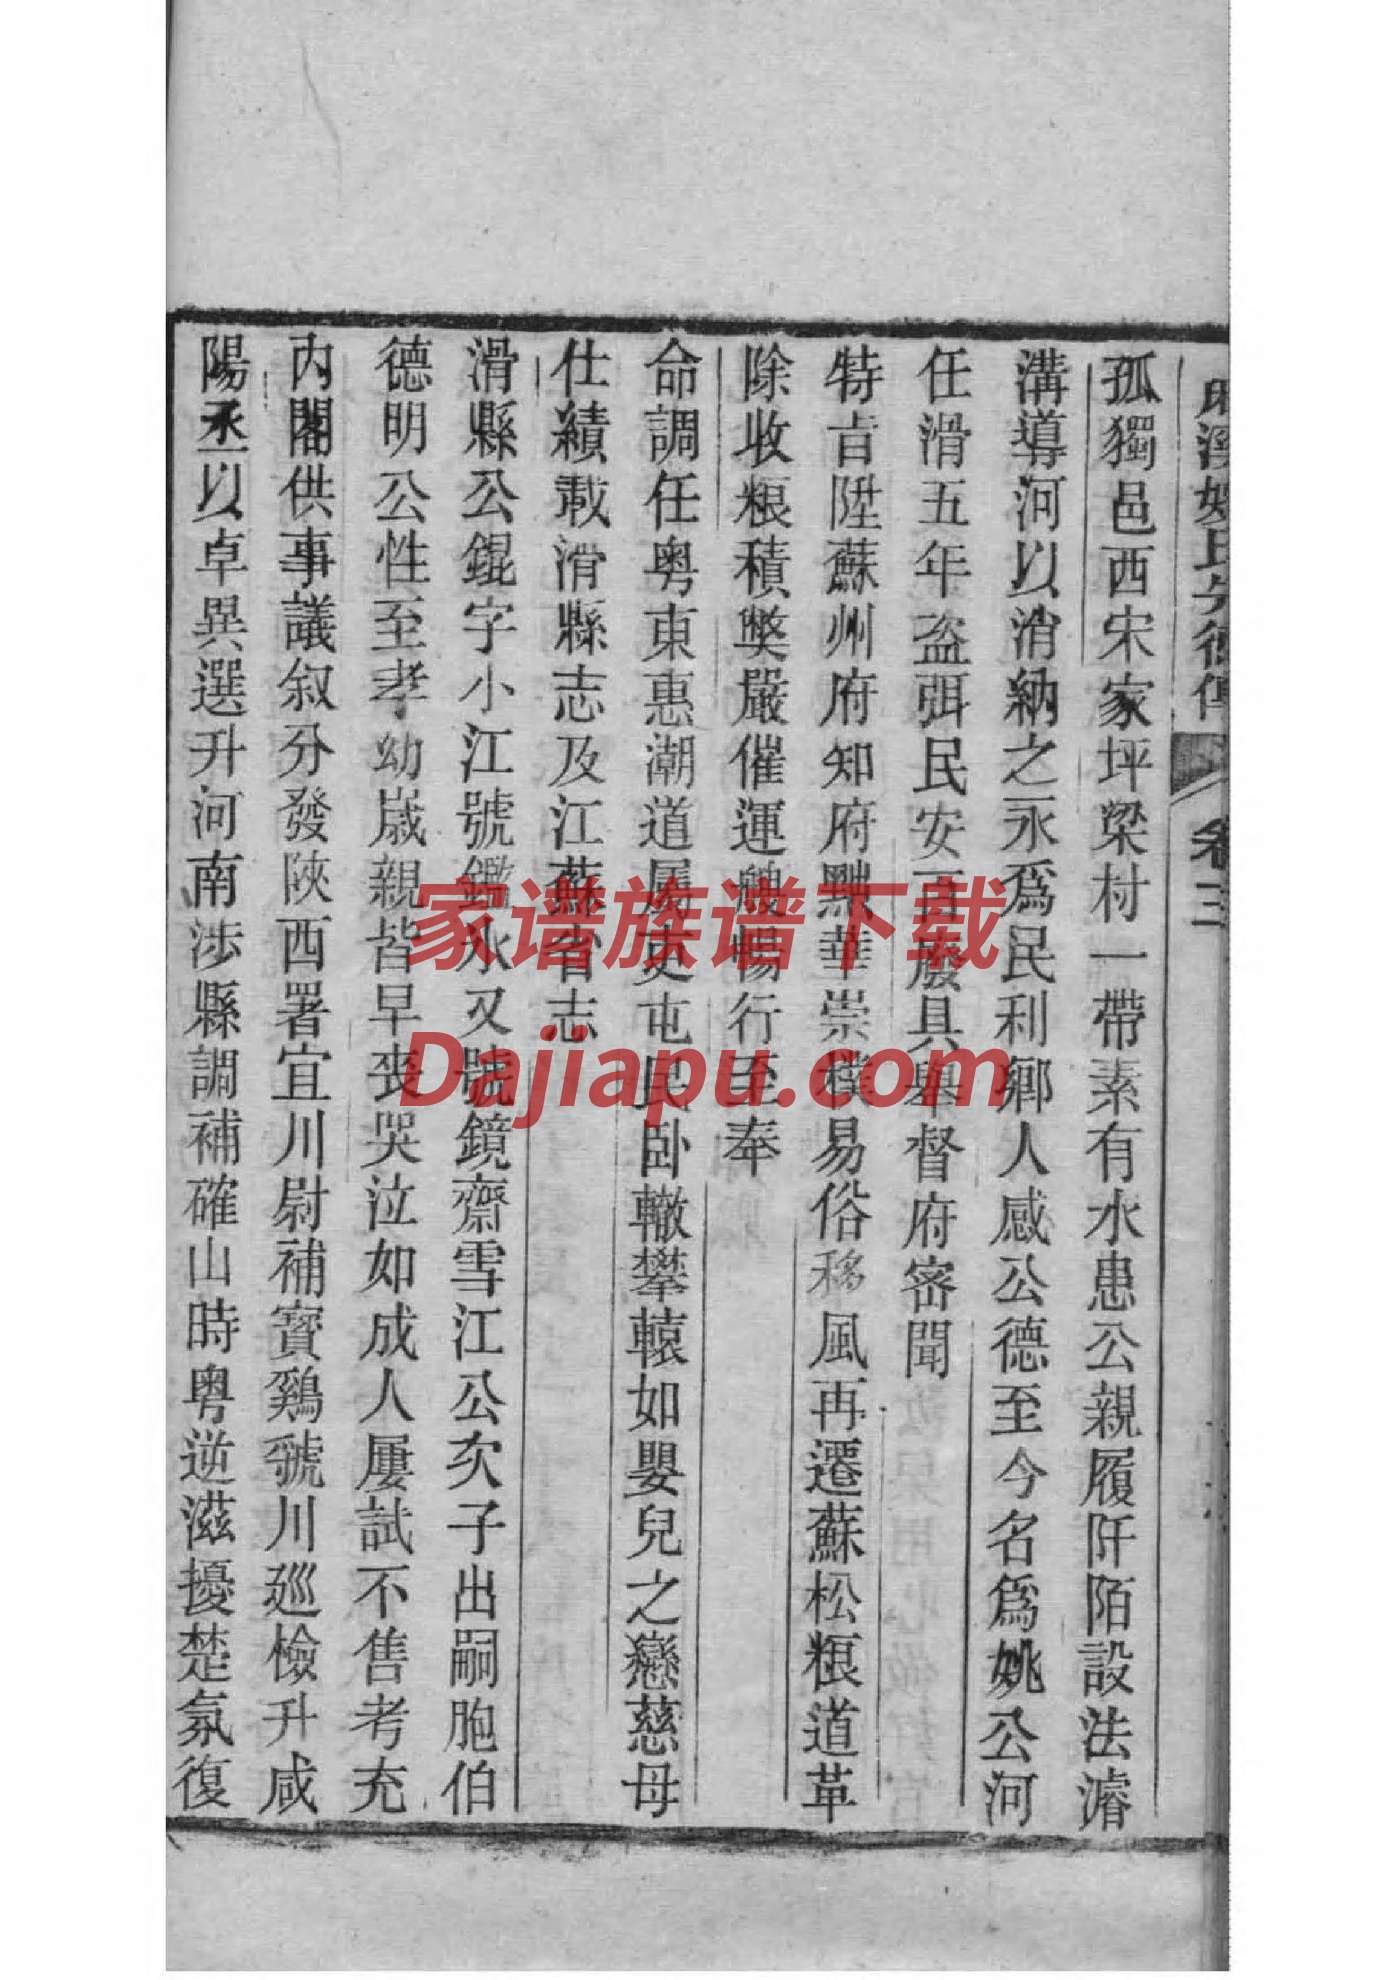 麻溪姚氏先德傳 卷三
孤獨邑西宋家坪梁村一帶素有水患公親履阡陌設法濬
溝導河以消納之永爲民利鄉人感公德至今名爲姚公河
任滑五年盗弭民安百廢具舉督府密聞
特旨陞蘇州府知府黜華崇樸易俗移風再遷蘇松粮道革
除收粮積獘嚴催運艘暢行至奉
命調任粤東惠潮道屬吏屯民卧轍攀轅如嬰兒之戀慈母
仕績載滑縣志及江蘇省志
滑縣公錕字小江號鑑水又號鏡齋雪江公次子出嗣胞伯
德明公性至孝幼嵗親皆早丧哭泣如成人屢試不售考充
内閣供事議叙分發陝西署宜川尉補寶鷄虢川廵檢升咸
陽丞以卓異選升河南涉縣調補確山時粤逆滋擾楚氛復
家谱族谱下载
Dajiapu.com